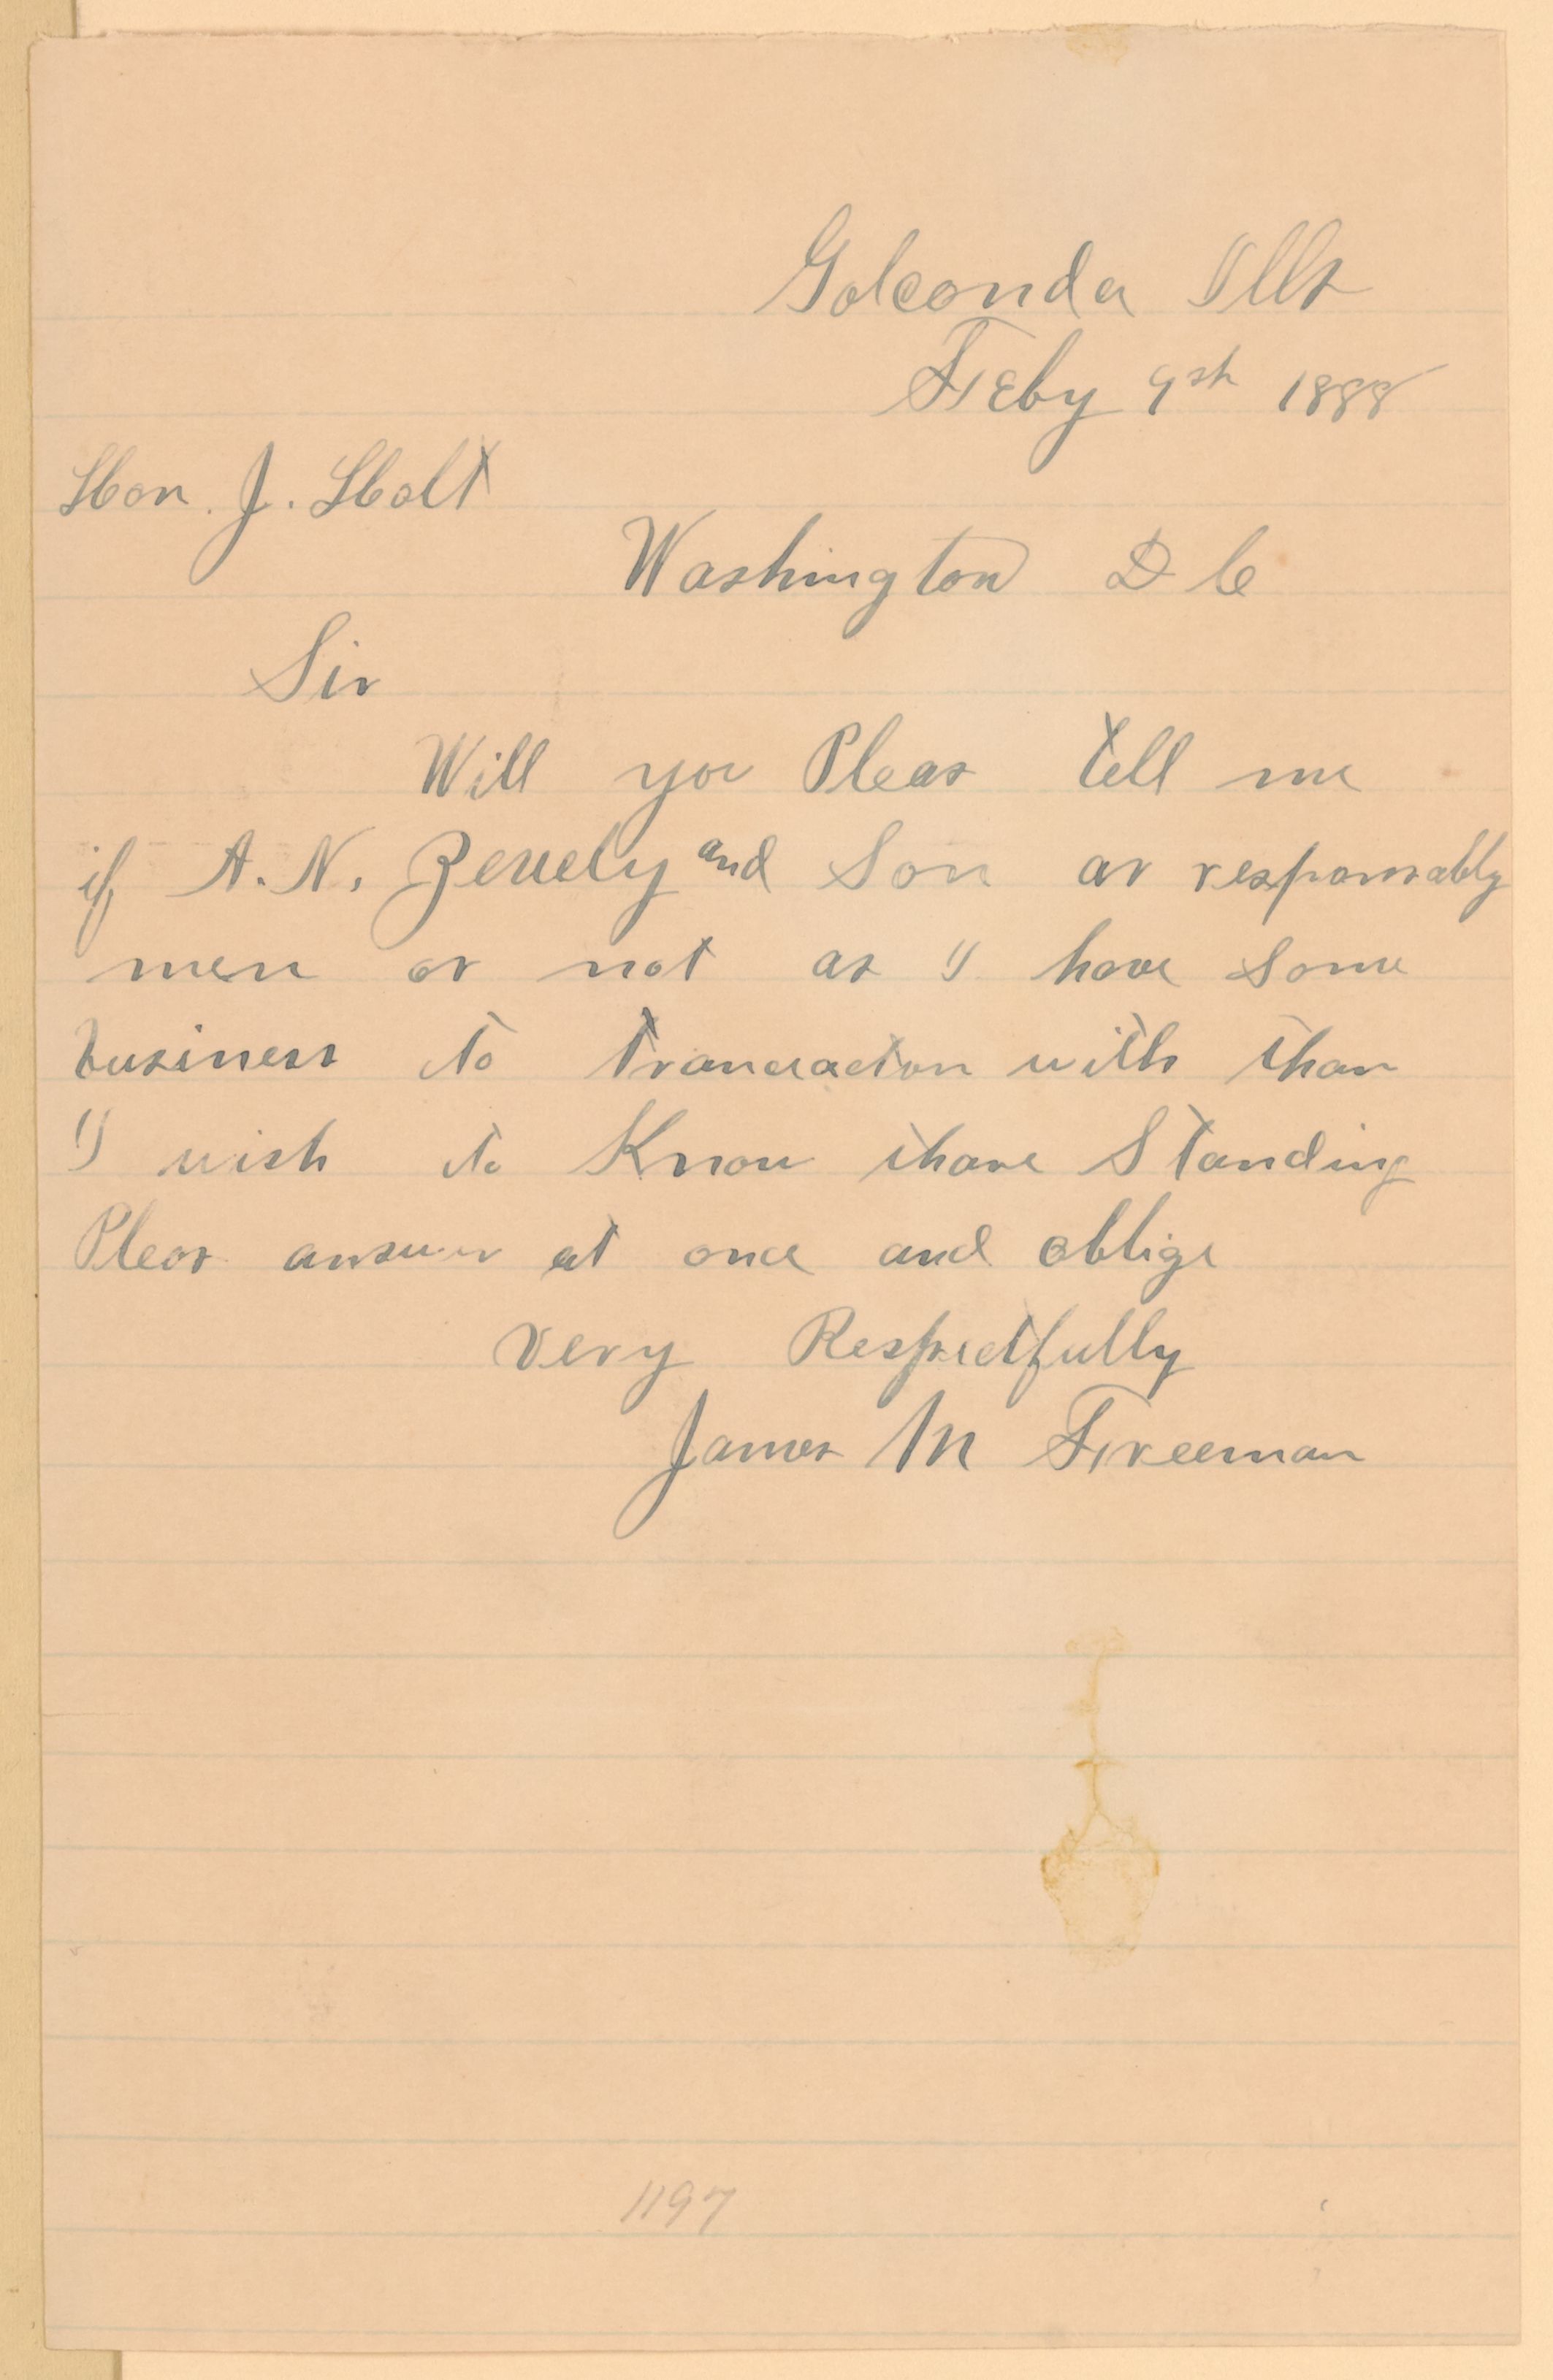 Golconda Ills
Feby 9th 1888
Hon. J. Holt
Washington D C
Sir
Will you Pleas tell me
if A. N. Zevely and Son ar responsably
men or not as I have some
business to trancacton with than
I wish to Know thare Standing
Pleas answer at once and oblige
very Respectfully
James M Freeman
1197